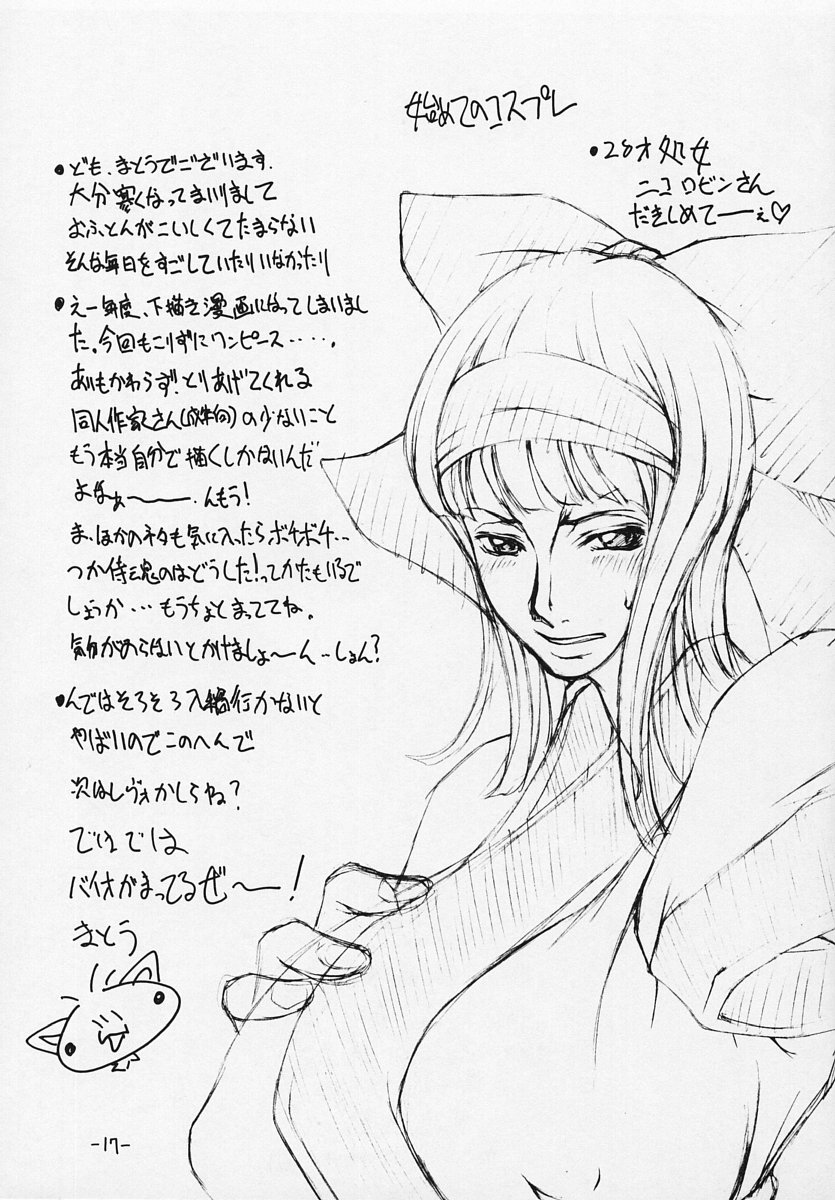 始めてのコスプレ
•28才処女
ニコロビンさん
だきしめてーぇ♡
•ども、まとうでございます.
大分寒くなってまいりまして
おふとんがこいしくてたまらない
そんな毎日をすごしていたりいなかったり
•えー毎度、下描き漫画になってしまいまし
た。今回もこりずにワンピース‥‥.
あいもかわらず!とりあげてくれる
同人作家さん(成年向)の少ないこと
もう本当自分で描くしかないんだ
よなぁ〜〜.んもう!
ま、ほかのネタも気に入ったらボチボチ‥
つか侍魂のはどうした!ってかたもいるで
しょうか…もうちょとまっててね。
気分がのらないとかけましぇ〜ん‥しょん?
•んではそろそろ入稿行かないと
やばいのでこのへんで
次はレヴォかしらね?
でわでは
バイオがまってるぜ〜!
まとう
-17-